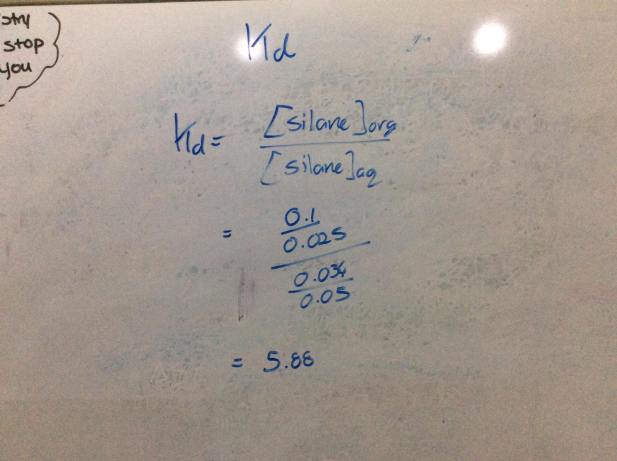 stry
stop
you
Kd
Kd = [silane]org
[silane]aq
= 0.1
0.025
0.034
0.05
= 5.88